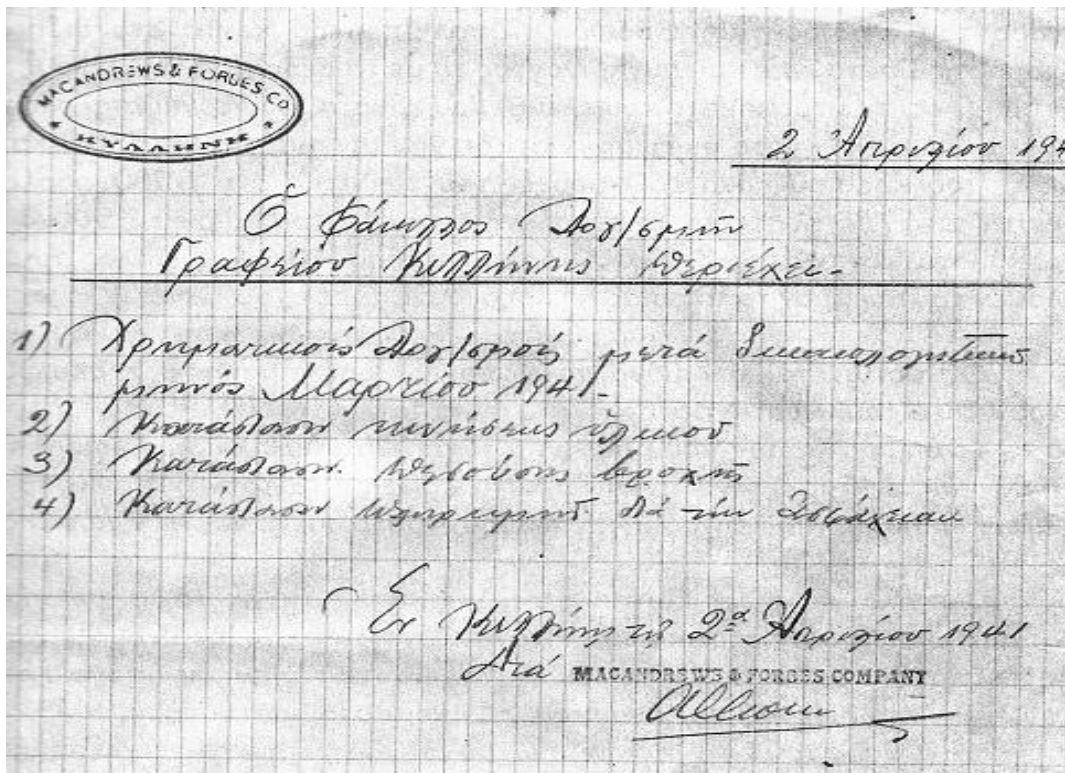 MACANDREWS & FORBES CO
ΚΥΛΛΗΝΗ
2 Ἀπριλίου 194
Ὁ Φάκελλος Λογ/σμῶν
Γραφείου Κυλλήνης περιέχει.-
1) Χρηματικούς Λογ/σμούς μετά δικαιολογητικών
μηνός Μαρτίου 1941.-
2) Κατάστασιν κινήσεως ὑλικού
3) Κατάστασιν πεσούσης βροχῆς
4) Κατάστασιν διά τήν
Ἐν Κυλλήνῃ τῇ 2ᾳ Ἀπριλίου 1941
Διά MACANDREWS & FORBES COMPANY